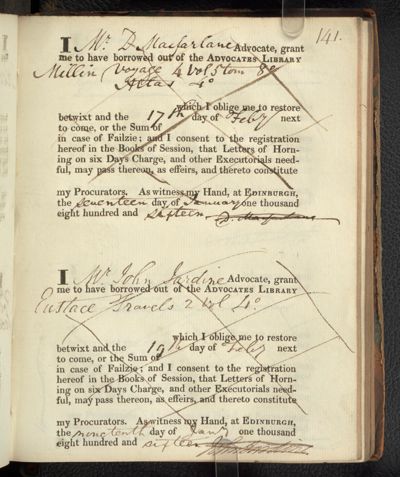 141.
I Mr. D Macfarlane Advocate, grant
me to have borrowed out of the ADVOCATES LIBRARY
Millin Voyage 4 Vol 5 tom 8o
Atlas 4o
which I oblige me to restore
betwixt and the 17th day of Feby next
to come, or the Sum of
in case of Failzie; and I consent to the registration
hereof in the Books of Session, that Letters of Horn-
ing on six Days Charge, and other Executorials need-
ful, may pass thereon, as effeirs, and thereto constitute
my Procurators. As witness my Hand, at EDINBURGH,
the seventeen day of January one thousand
eight hundred and sixteen D. Macfarlane
I Mr. John Jardine Advocate, grant
me to have borrowed out of the ADVOCATES LIBRARY
Eustace Travels 2 Vol 4o.
which I oblige me to restore
betwixt and the 19th day of Feby next
to come, or the Sum of
in case of Failzie; and I consent to the registration
hereof in the Books of Session, that Letters of Horn-
ing on six Days Charge, and other Executorials need-
ful, may pass thereon, as effeirs, and thereto constitute
my Procurators. As witness my Hand, at EDINBURGH,
the day of Jany one thousand
eight hundred and sixteen